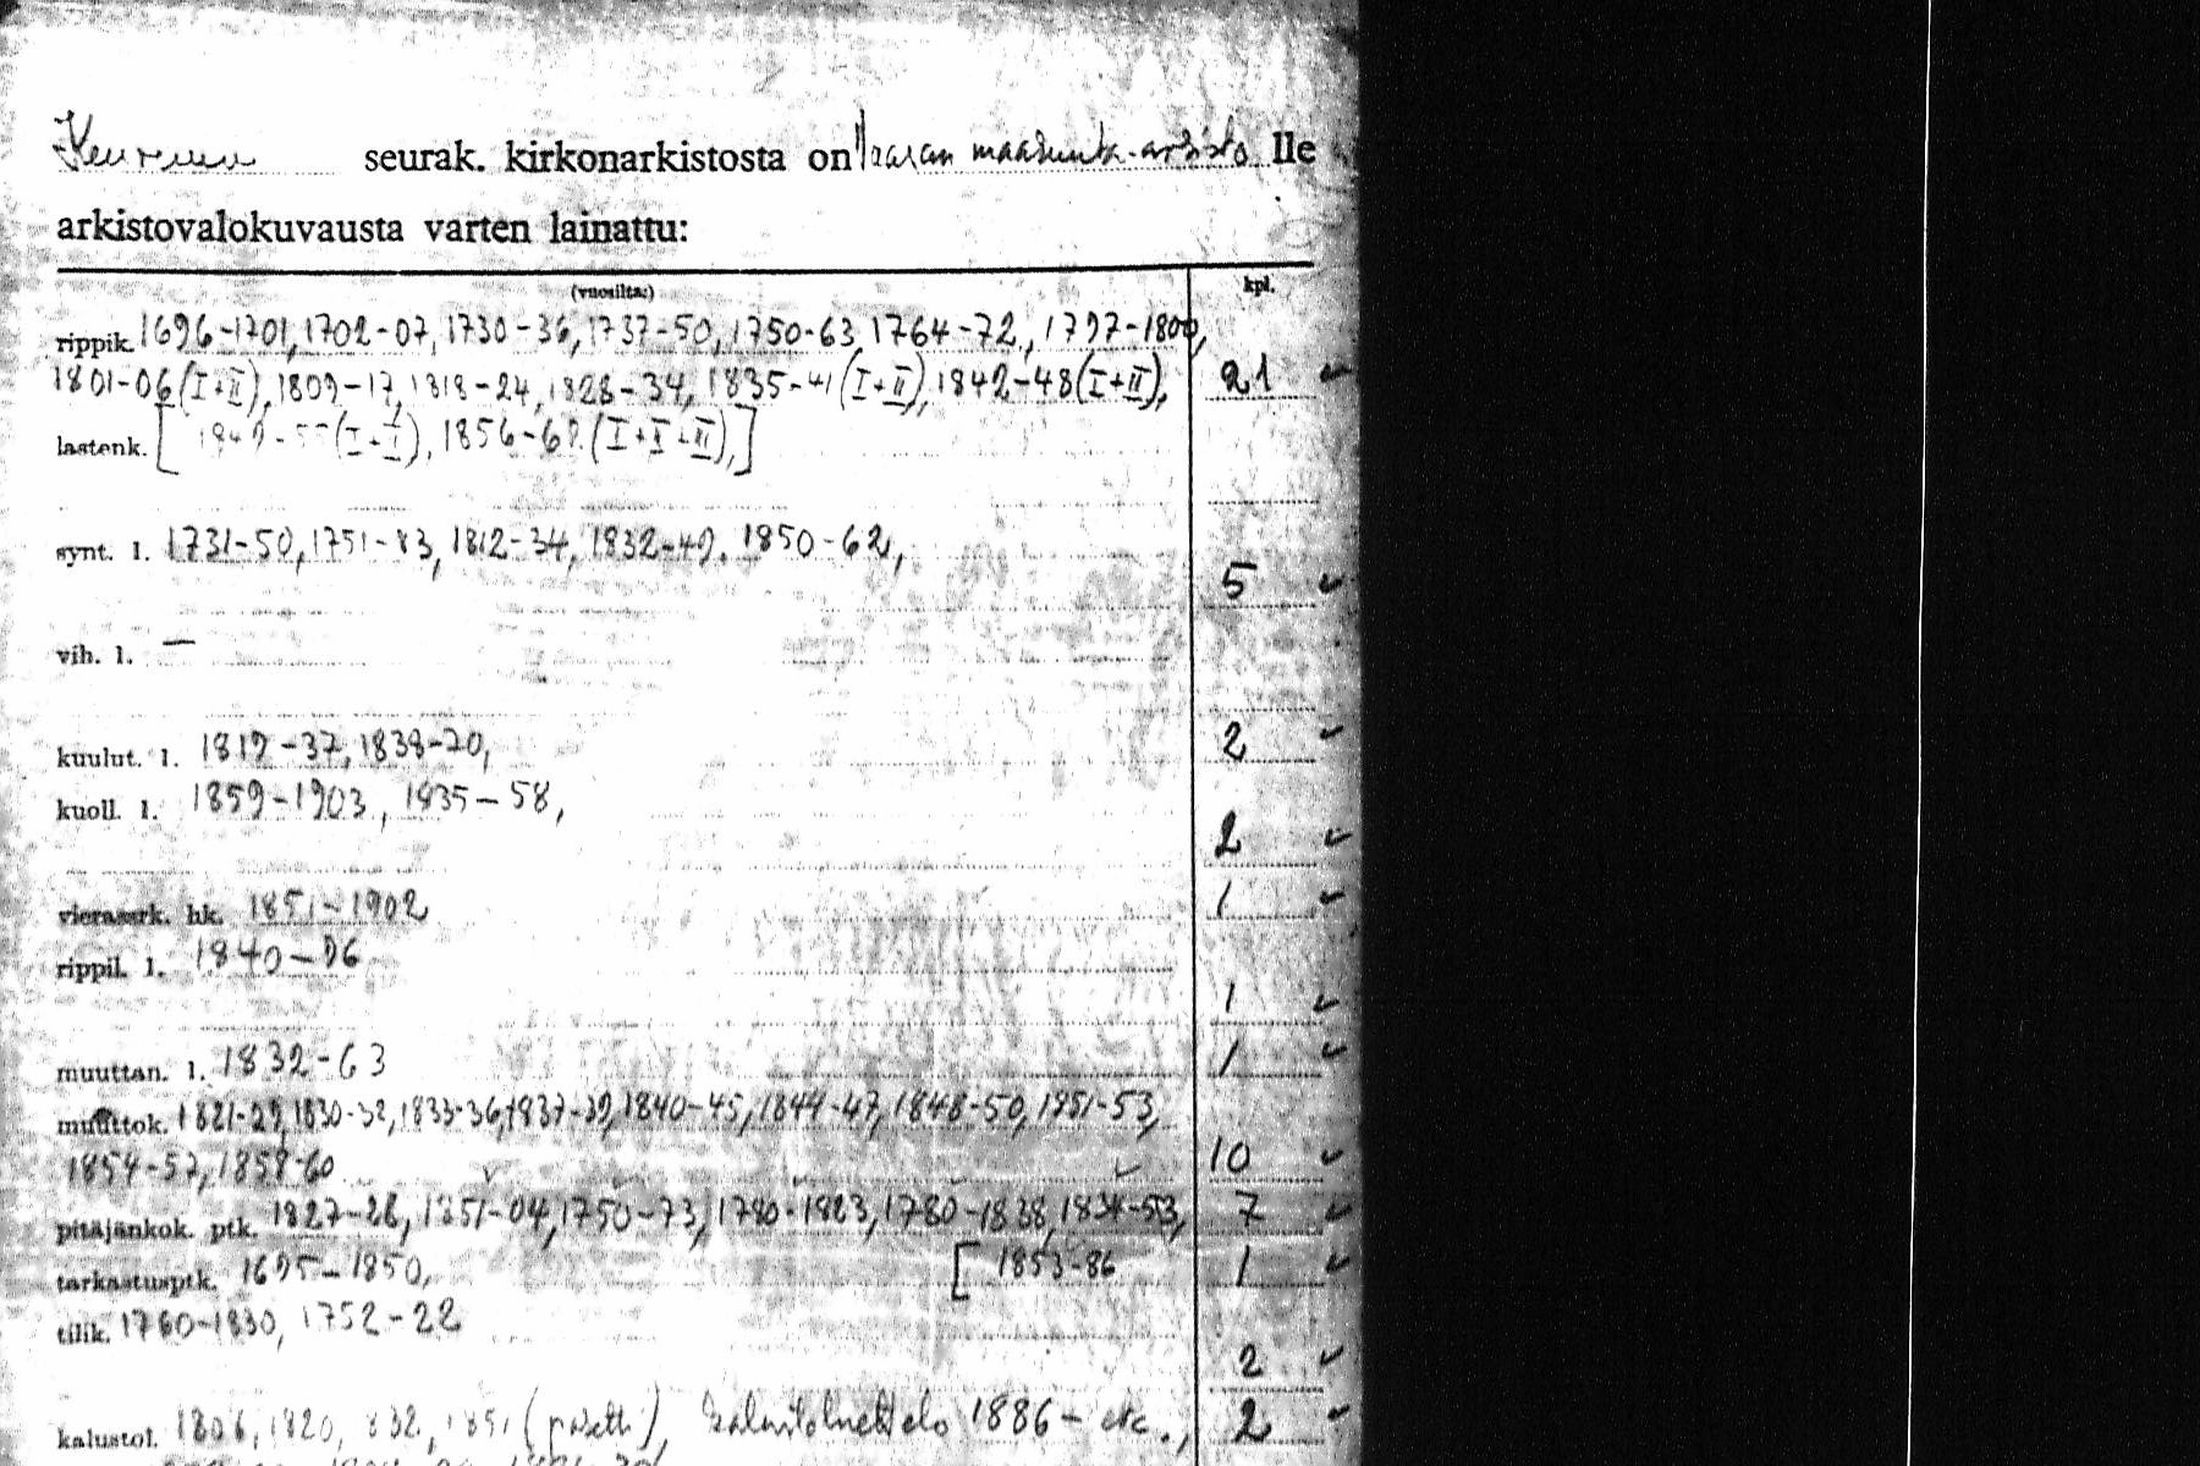 Keuruun seurak. kirkonarkistosta on Vaasan maakunta-arkisto lle
arkistovalokuvausta varten lainattu:
(vuosilta:) kpl.
rippik. 1696-1701, 1702-07, 1730-36, 1737-50, 1750-63, 1764-72, 1797-1800,
1801-06 (I+II), 1809-17, 1818-24, 1828-34, 1835-41 (I+II), 1842-48 (I+II), 21 ✓
lastenk. [1849-55 (I+II), 1856-62 (I+II+III),]
synt. l. 1731-50, 1751-83, 1812-34, 1832-49, 1850-62,
5 ✓
vih. l. —
kuulut. l. 1819-37, 1838-70, 2 ✓
kuoll. l. 1859-1903, 1835-58,
2 ✓
vierassrk. hk. 1851-1902 1 ✓
rippil. l. 1840-96
1 ✓
muuttan. l. 1832-63 1 ✓
muuttok. 1821-29, 1830-32, 1833-36, 1837-39, 1840-45, 1844-47, 1848-50, 1851-53,
1854-57, 1858-60 10 ✓
pitäjänkok. ptk. 1827-28, 1851-04, 1750-73, 1780-1823, 1780-1838, 1834-53, 7 ✓
tarkastusptk. 1695-1850, [1853-86 1 ✓
tilik. 1760-1830, 1752-22
2 ✓
kalustol. 1806, 1820, 1832, 1851 kalustoluettelo 1886- etc., 2 ✓